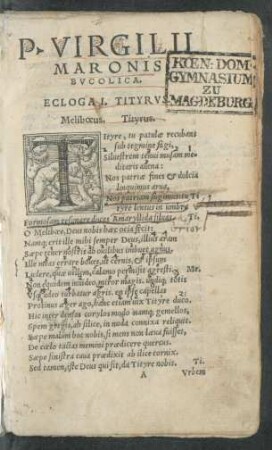 P. VIRGILII
MARONIS
BVCOLICA.
ECLOGA I. TITYRVS.
KŒN: DOM
GYMNASIUM
ZU
MAGDEBURG
Meliboeus. Tityrus.
Tityre, tu patulæ recubans
sub tegmine fagi,
Siluestrem tenui musam me-
ditaris auena:
Nos patriæ fines & dulcia
linquimus arua,
Nos patriam fugimus: tu Ti-
tyre lentus in umbra
Formosam resonare doces Amaryllida siluas. Ti.
O Melibœe, Deus nobis hæc ocia fecit:
Namq; erit ille mihi semper Deus, illius aram
Sæpe tener nostris ab ouilibus imbuet agnus,
Ille meas errare boues, ut cernis, & ipsum
Ludere, quæ uellem, calamo permisit agresti. Me.
Non equidem inuideo, miror magis. undiq; totis
Vsq; adeo turbatur agris. en ipse capellas
Protinus æger ago, hanc etiam uix Tityre duco.
Hic inter densas corylos modo namq; gemellos,
Spem gregis, ah, silice in nuda connixa reliquit.
Sæpe malum hoc nobis, si mens non læua fuisset,
De cœlo tactas memini prædicere quercus.
Sæpe sinistra caua prædixit ab ilice cornix.
Sed tamen, iste Deus qui sit, da Tityre nobis. Ti.
A Vrbem